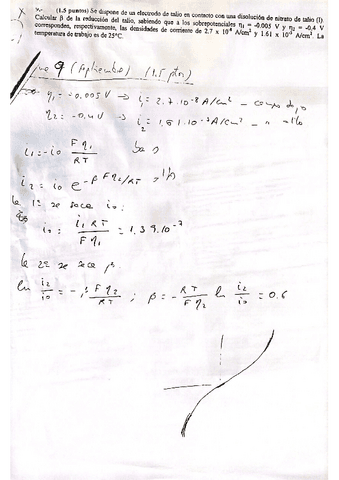 (1.5 puntos) Se dispone de un electrodo de talio en contacto con una disolución de nitrato de talio (I).
Calcular β de la reducción del talio, sabiendo que a los sobrepotenciales η₁ = -0.005 V y η₂ = -0.4 V
corresponden, respectivamente, las densidades de corriente de 2.7 x 10⁻⁸ A/cm² y 1.61 x 10⁻³ A/cm². La
temperatura de trabajo es de 25°C.
9 (Septiembre) (1.5 ptos)
η₁ = -0.005V → i₁ = 2.7·10⁻⁸ A/cm²
η₂ = -0.4V → i₂ =
i₁ = -i₀ Fη₁/RT
i₂ = i₀ e^(-βFη₂/RT)
la 1ª se saca i₀:
i₀ = i₁RT/Fη₁ = 1.39·10⁻⁷
la 2ª se saca β.
ln i₂/i₀ = -β Fη₂/RT ; β = -RT/Fη₂ ln i₂/i₀ = 0.6